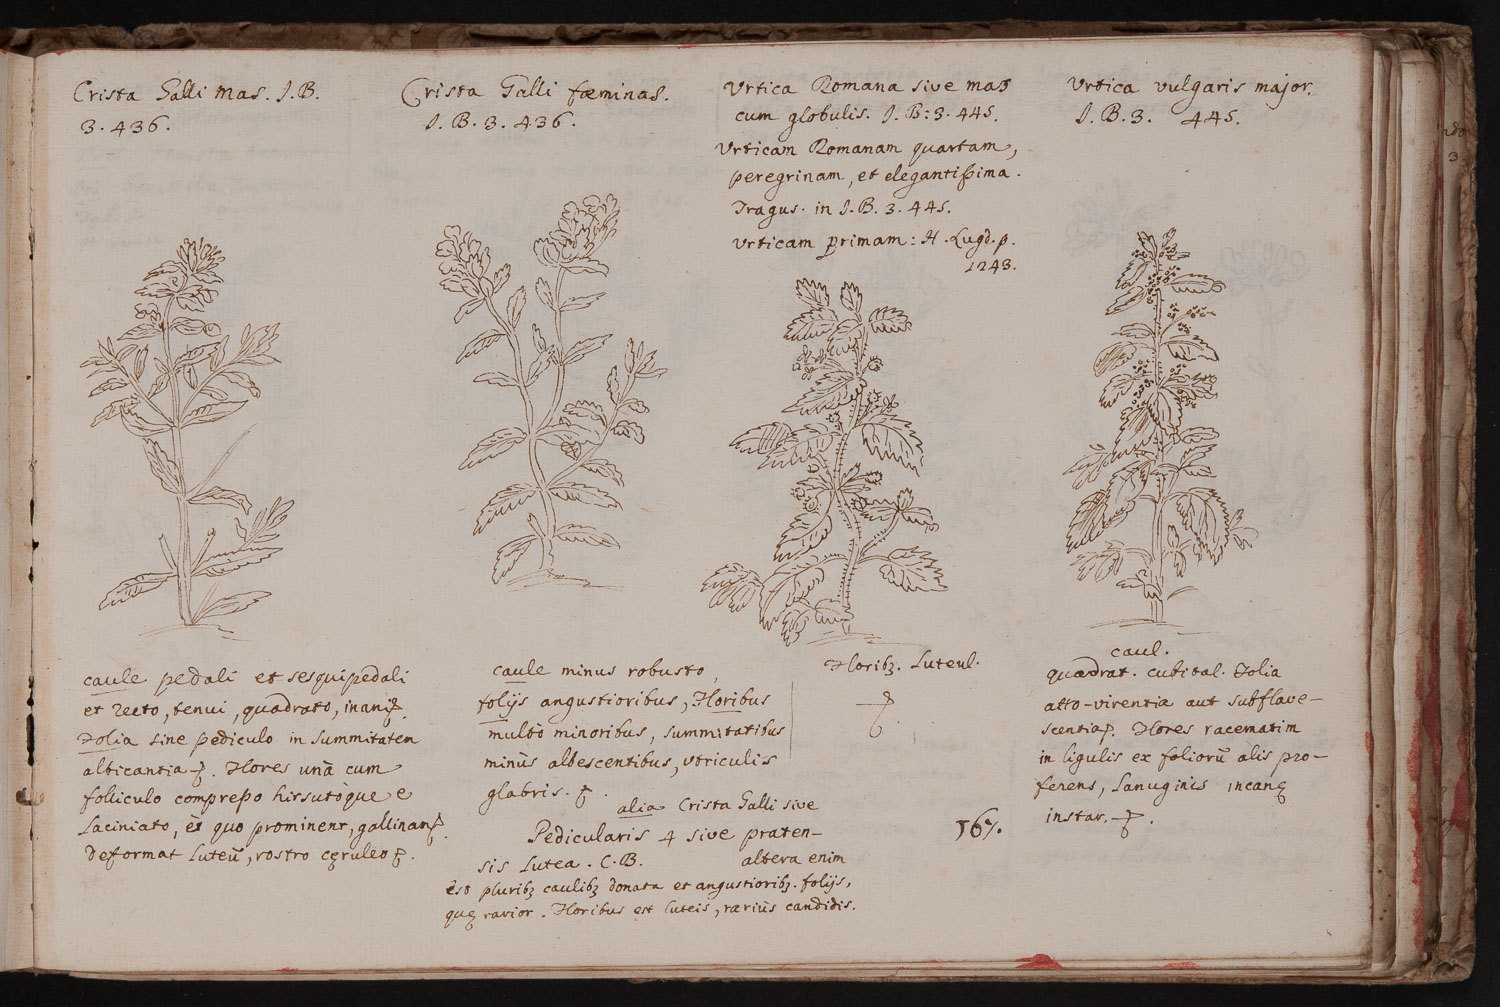 Crista Galli mas. J.B.
3. 436.
caule pedali et sesquipedali
et recto, tenui, quadrato, inaniq.
Folia sine pediculo in summitatem
albicantia. Flores unà cum
folliculo compresso hirsutóque e
laciniato, è quo prominent,
deformat luteũ, rostro cęruleo
Crista Galli fæminas.
J.B. 3. 436.
caule minus robusto,
folijs angustioribus, Floribus
multò minoribus, summitatibus
minùs albescentibus, utriculis
glabris.
alia Crista Galli sive
Pedicularis 4 sive praten-
sis lutea. C.B. altera enim
est pluribꝫ caulibꝫ donata et angustioribꝫ. folijs,
quę rarior. Floribus est luteis, rariùs candidis.
Urtica Romana sive mas
cum globulis. J.B: 3. 445.
Urticam Romanam quartam,
peregrinam, et elegantissima.
Tragus. in J.B. 3. 445.
Urticam primam: H. Lugd. p.
1243.
Floribꝫ. Luteul.
Urtica vulgaris major.
J.B. 3. 445.
caul.
quadrat. cubital. Folia
atto-virentia aut subflave-
scentia. Flores racematim
in ligulis ex foliorũ alis pro-
ferens, Lanuginis incanę
instar.
567.